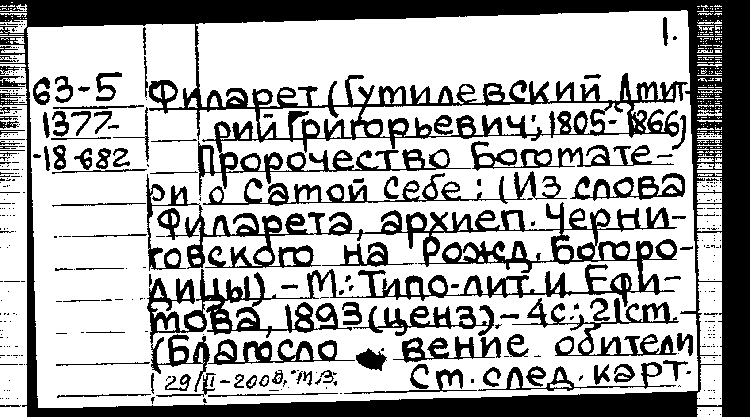 1.
63-5 Филарет (Гумилевский, Дмит-
1377- рий Григорьевич; 1805-1866)
-18 682 Пророчество Богомате-
ри о Самой Себе: (Из слова
Филарета, архиеп. Черни-
говского на Рожд. Богоро-
дицы). - М.: Типо-лит. И. Ефи-
мова, 1893 (ценз.). - 4с.; 21см. -
(Благосло вение обители
29/II-2008. М.В. См. след. карт.